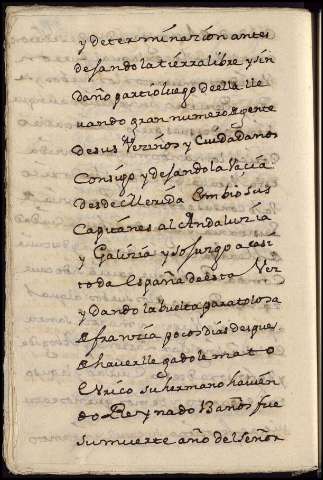 y determinazion antes
desando la tierra libre y sin
daño partio luego de ella lle
uando gran numero de gente
de sus Vezinos y Ciudadanos
Consigo y desando la Vacia
desde Merida Embio sus
Capitanes al Andaluzia
y Galizia y sojuzgo a casi
toda España de esta Vez
y dando la buelta para tolosa
de franzia pocos dias despues
de hauer llegado le mato
Eurico su hermano hauien
do Reynado 13 años fue
su muerte año del señor